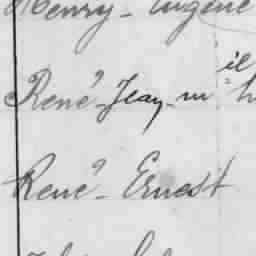 Henry - Eugène
René Jean - m
René - Ernest